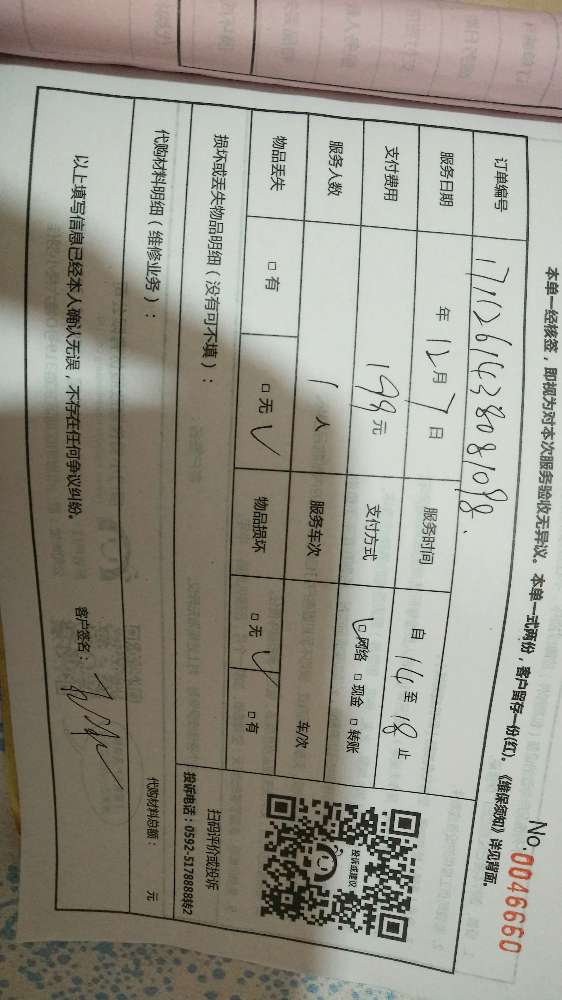 No. 0046660
本单一经核签，即视为对本次服务验收无异议。本单一式两份，客户留存一份(红)。《维保须知》详见背面。
订单编号 1711261438081098.
服务日期 年 12月7日 服务时间 自 14 至 18 止
支付费用 198元 支付方式 □网络 □现金 □转账
服务人数 1人 服务车次 车/次
物品丢失 □有 □无 √ 物品损坏 □无 √ □有
损坏或丢失物品明细（没有可不填）：
代购材料明细（维修业务）：
代购材料总额： 元
投诉或建议
扫码评价或投诉
投诉电话：0592-5178888转2
以上填写信息已经本人确认无误，不存在任何争议纠纷。
客户签名：